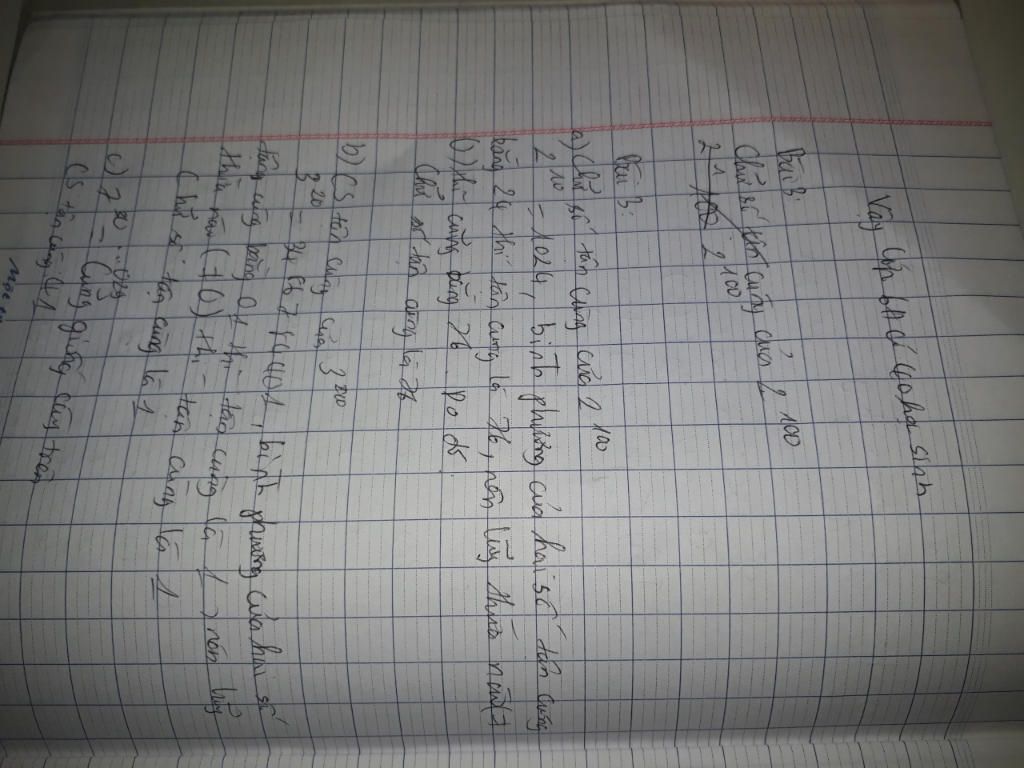 Vậy lớp 6A có 40 học sinh
Bài 3:
Chữ số tận cùng của 2 100
2 1 2 100
Bài 3:
a) Chữ số tận cùng của 2 100
2 10 = 1024, bình phương của hai số tận cùng
bằng 24 thì tận cùng là 76, nên lũy thừa
thì cũng bằng 76. Do đó
Chữ số tận cùng là 76
b) CS tận cùng của 3 200
3 20 =
tận cùng bằng 01 thì tận cùng là 1, nên lũy
thừa thì tận cùng là 1
Chữ số tận cùng là 1
c) 7 = Cũng giống câu trên
CS tận cùng là 1